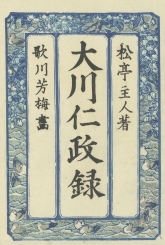 松亭主人著
大川仁政録
歌川芳梅畫